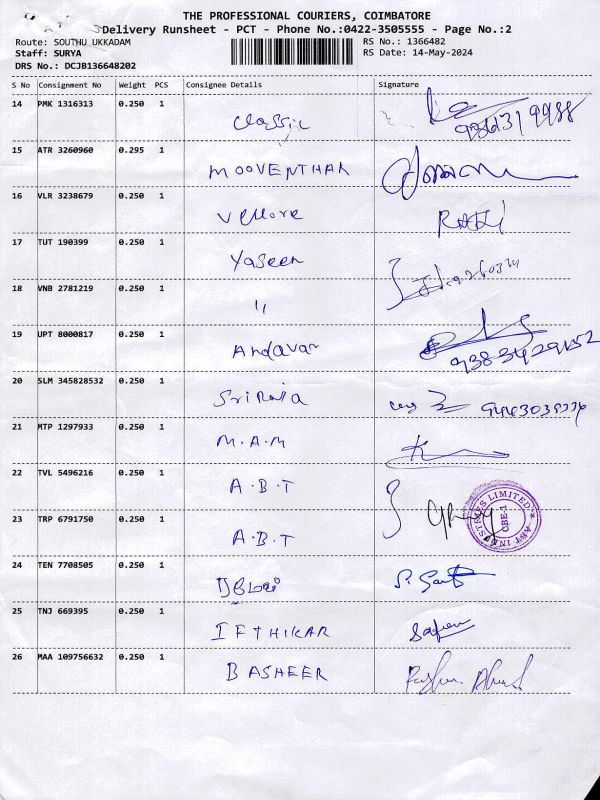 THE PROFESSIONAL COURIERS, COIMBATORE
Delivery Runsheet - PCT - Phone No.:0422-3505555 - Page No.:2
Route: SOUTHU UKKADAM RS No.: 1366482
Staff: SURYA RS Date: 14-May-2024
DRS No.: DCJB136648202
S No Consignment No Weight PCS Consignee Details Signature
14 PMK 1316313 0.250 1
classic
15 ATR 3260960 0.295 1
MOOVENTHAR
16 VLR 3238679 0.250 1
Vellore
17 TUT 190399 0.250 1
Yaseen
18 VNB 2781219 0.250 1
"
19 UPT 8000817 0.250 1
Andavar
9383429152
20 SLM 345828532 0.250 1
Sri Raja
21 MTP 1297933 0.250 1
M.A.M
22 TVL 5496216 0.250 1
A.B.T
ABT INDUSTRIES LIMITED
CBE-1
23 TRP 6791750 0.250 1
A.B.T
24 TEN 7708505 0.250 1
25 TNJ 669395 0.250 1
IFTHIKAR
26 MAA 109756632 0.250 1
BASHEER